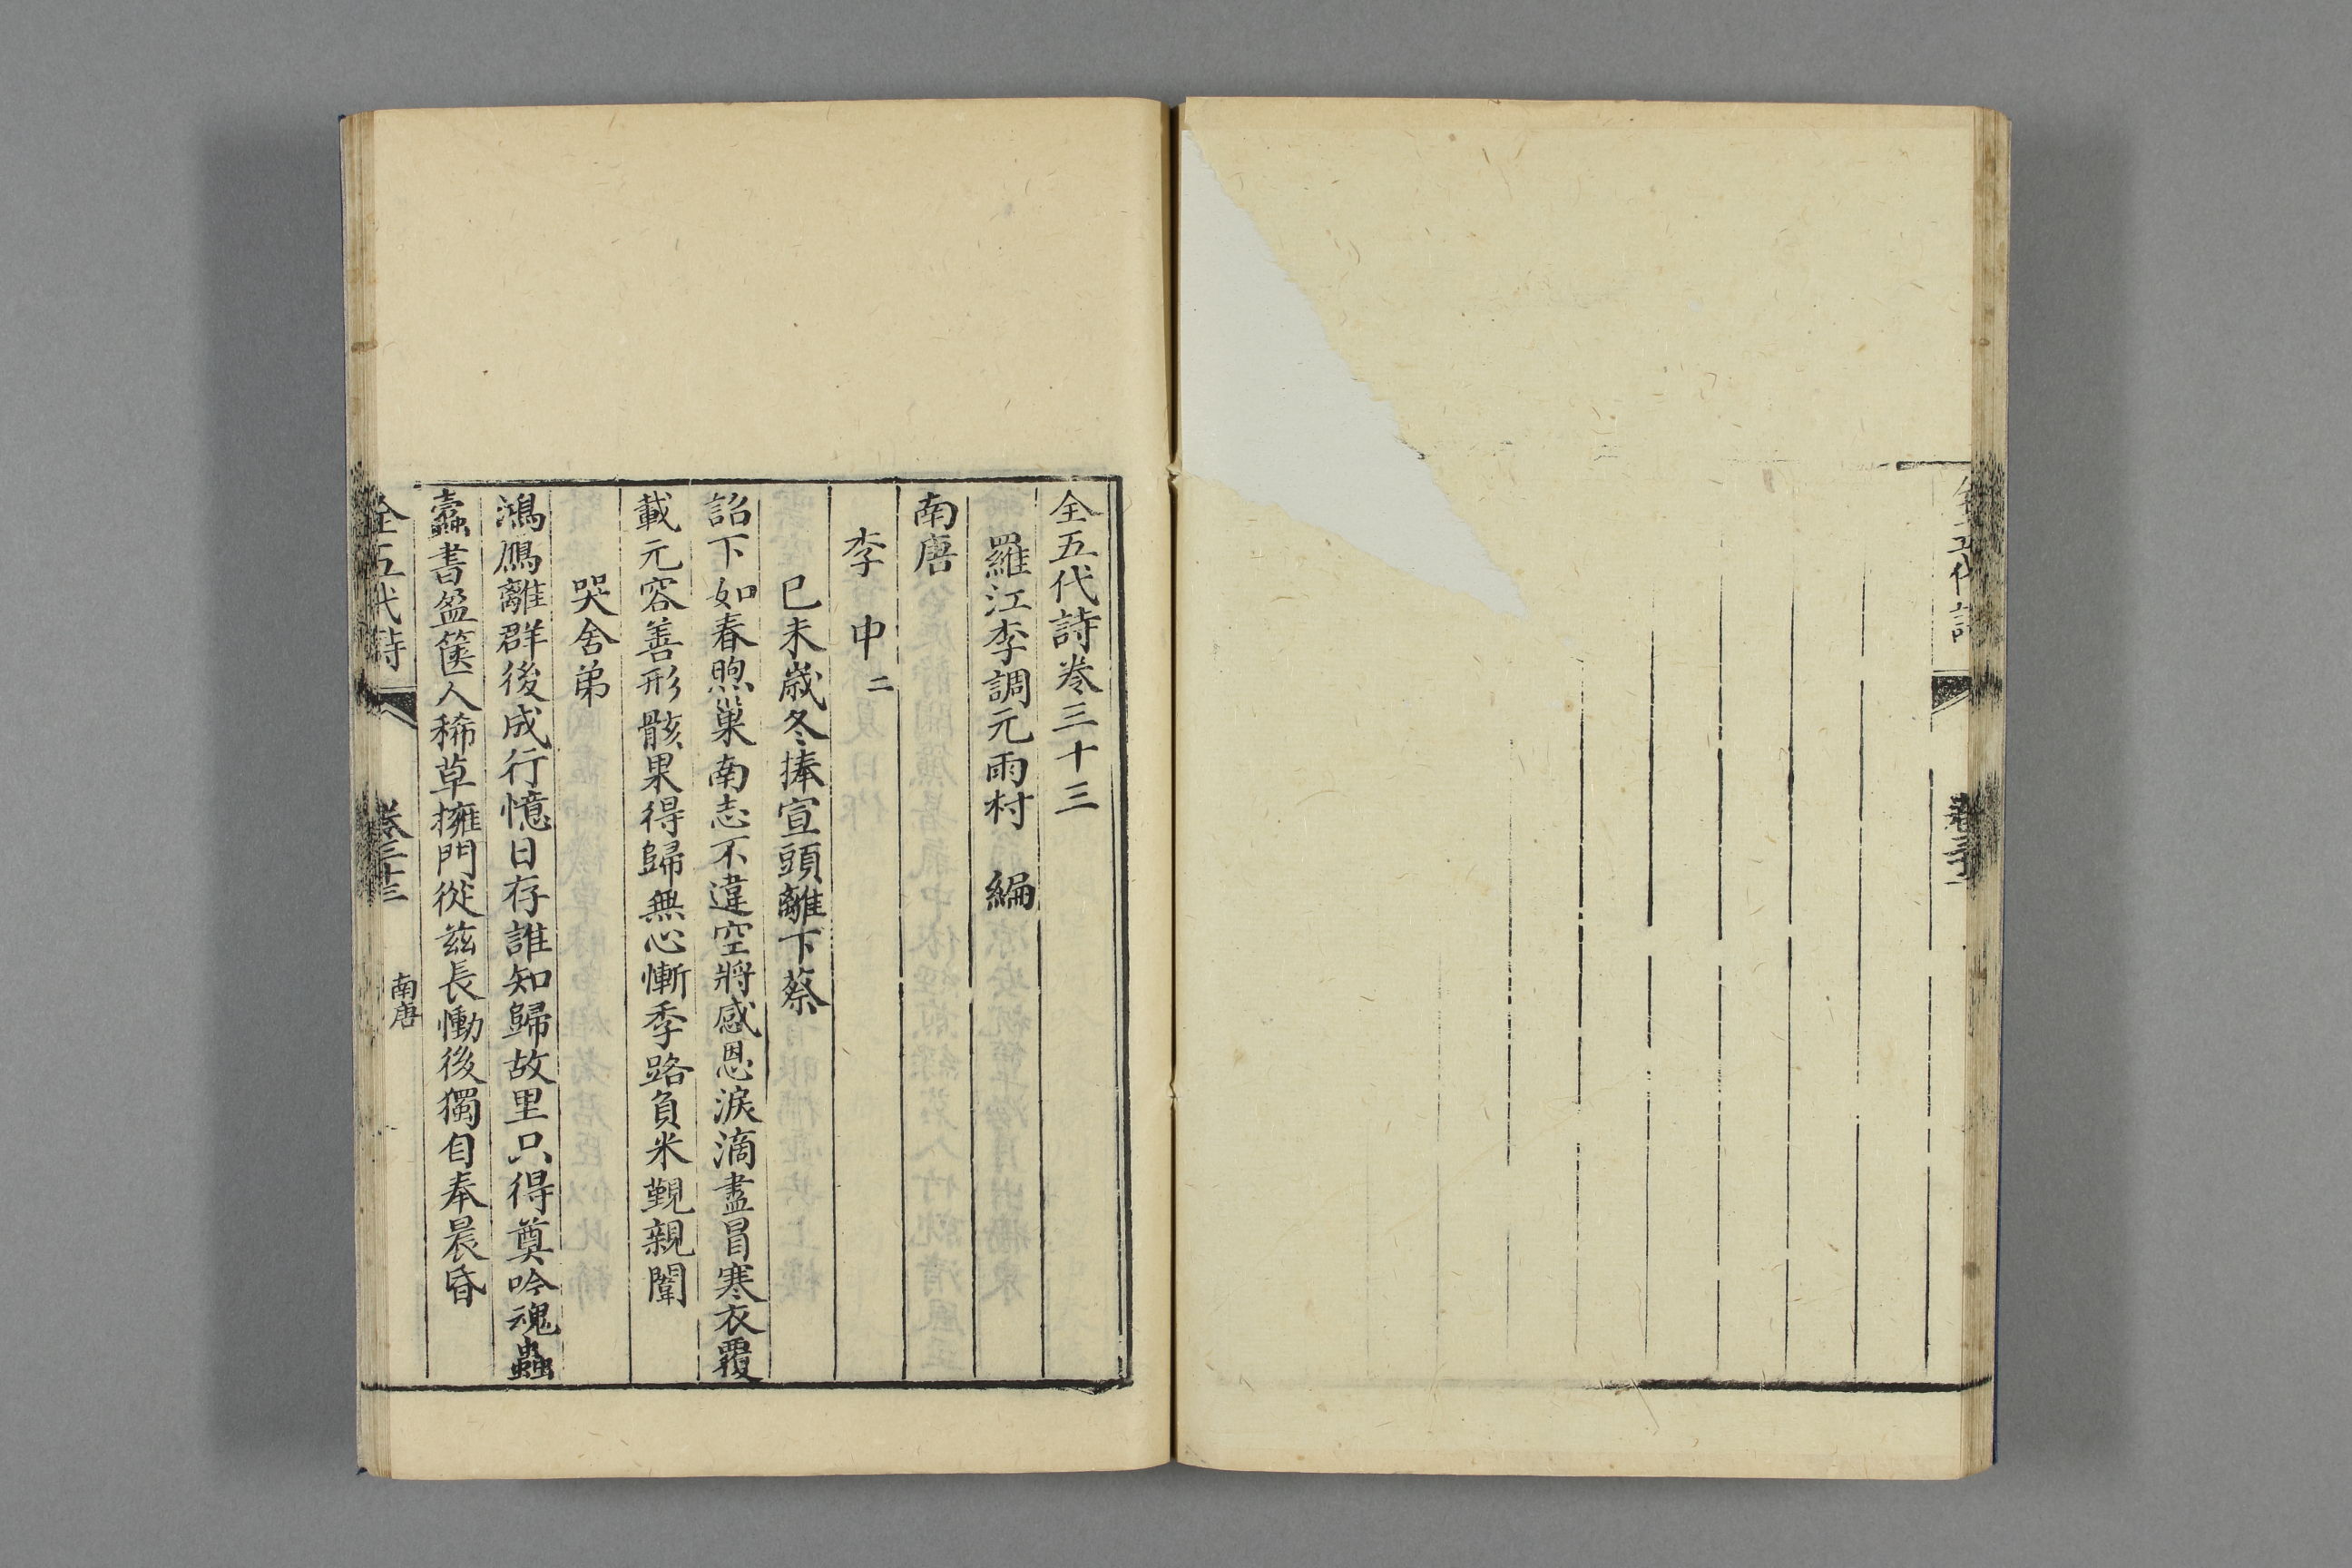 全五代詩卷三十三
羅江李調元雨村 編
南唐
李 中 二
己未歲冬捧宣頭離下蔡
詔下如春煦巢南志不違空將感恩淚滴盡冒寒衣覆
載元容善形骸果得歸無心慚季路負米覲親闈
哭舍弟
鴻鴈離群後成行憶日存誰知歸故里只得奠吟魂蟲
蠹書盈篋人稀草擁門從兹長慟後獨自奉晨昏
全五代詩 卷三十三 南唐